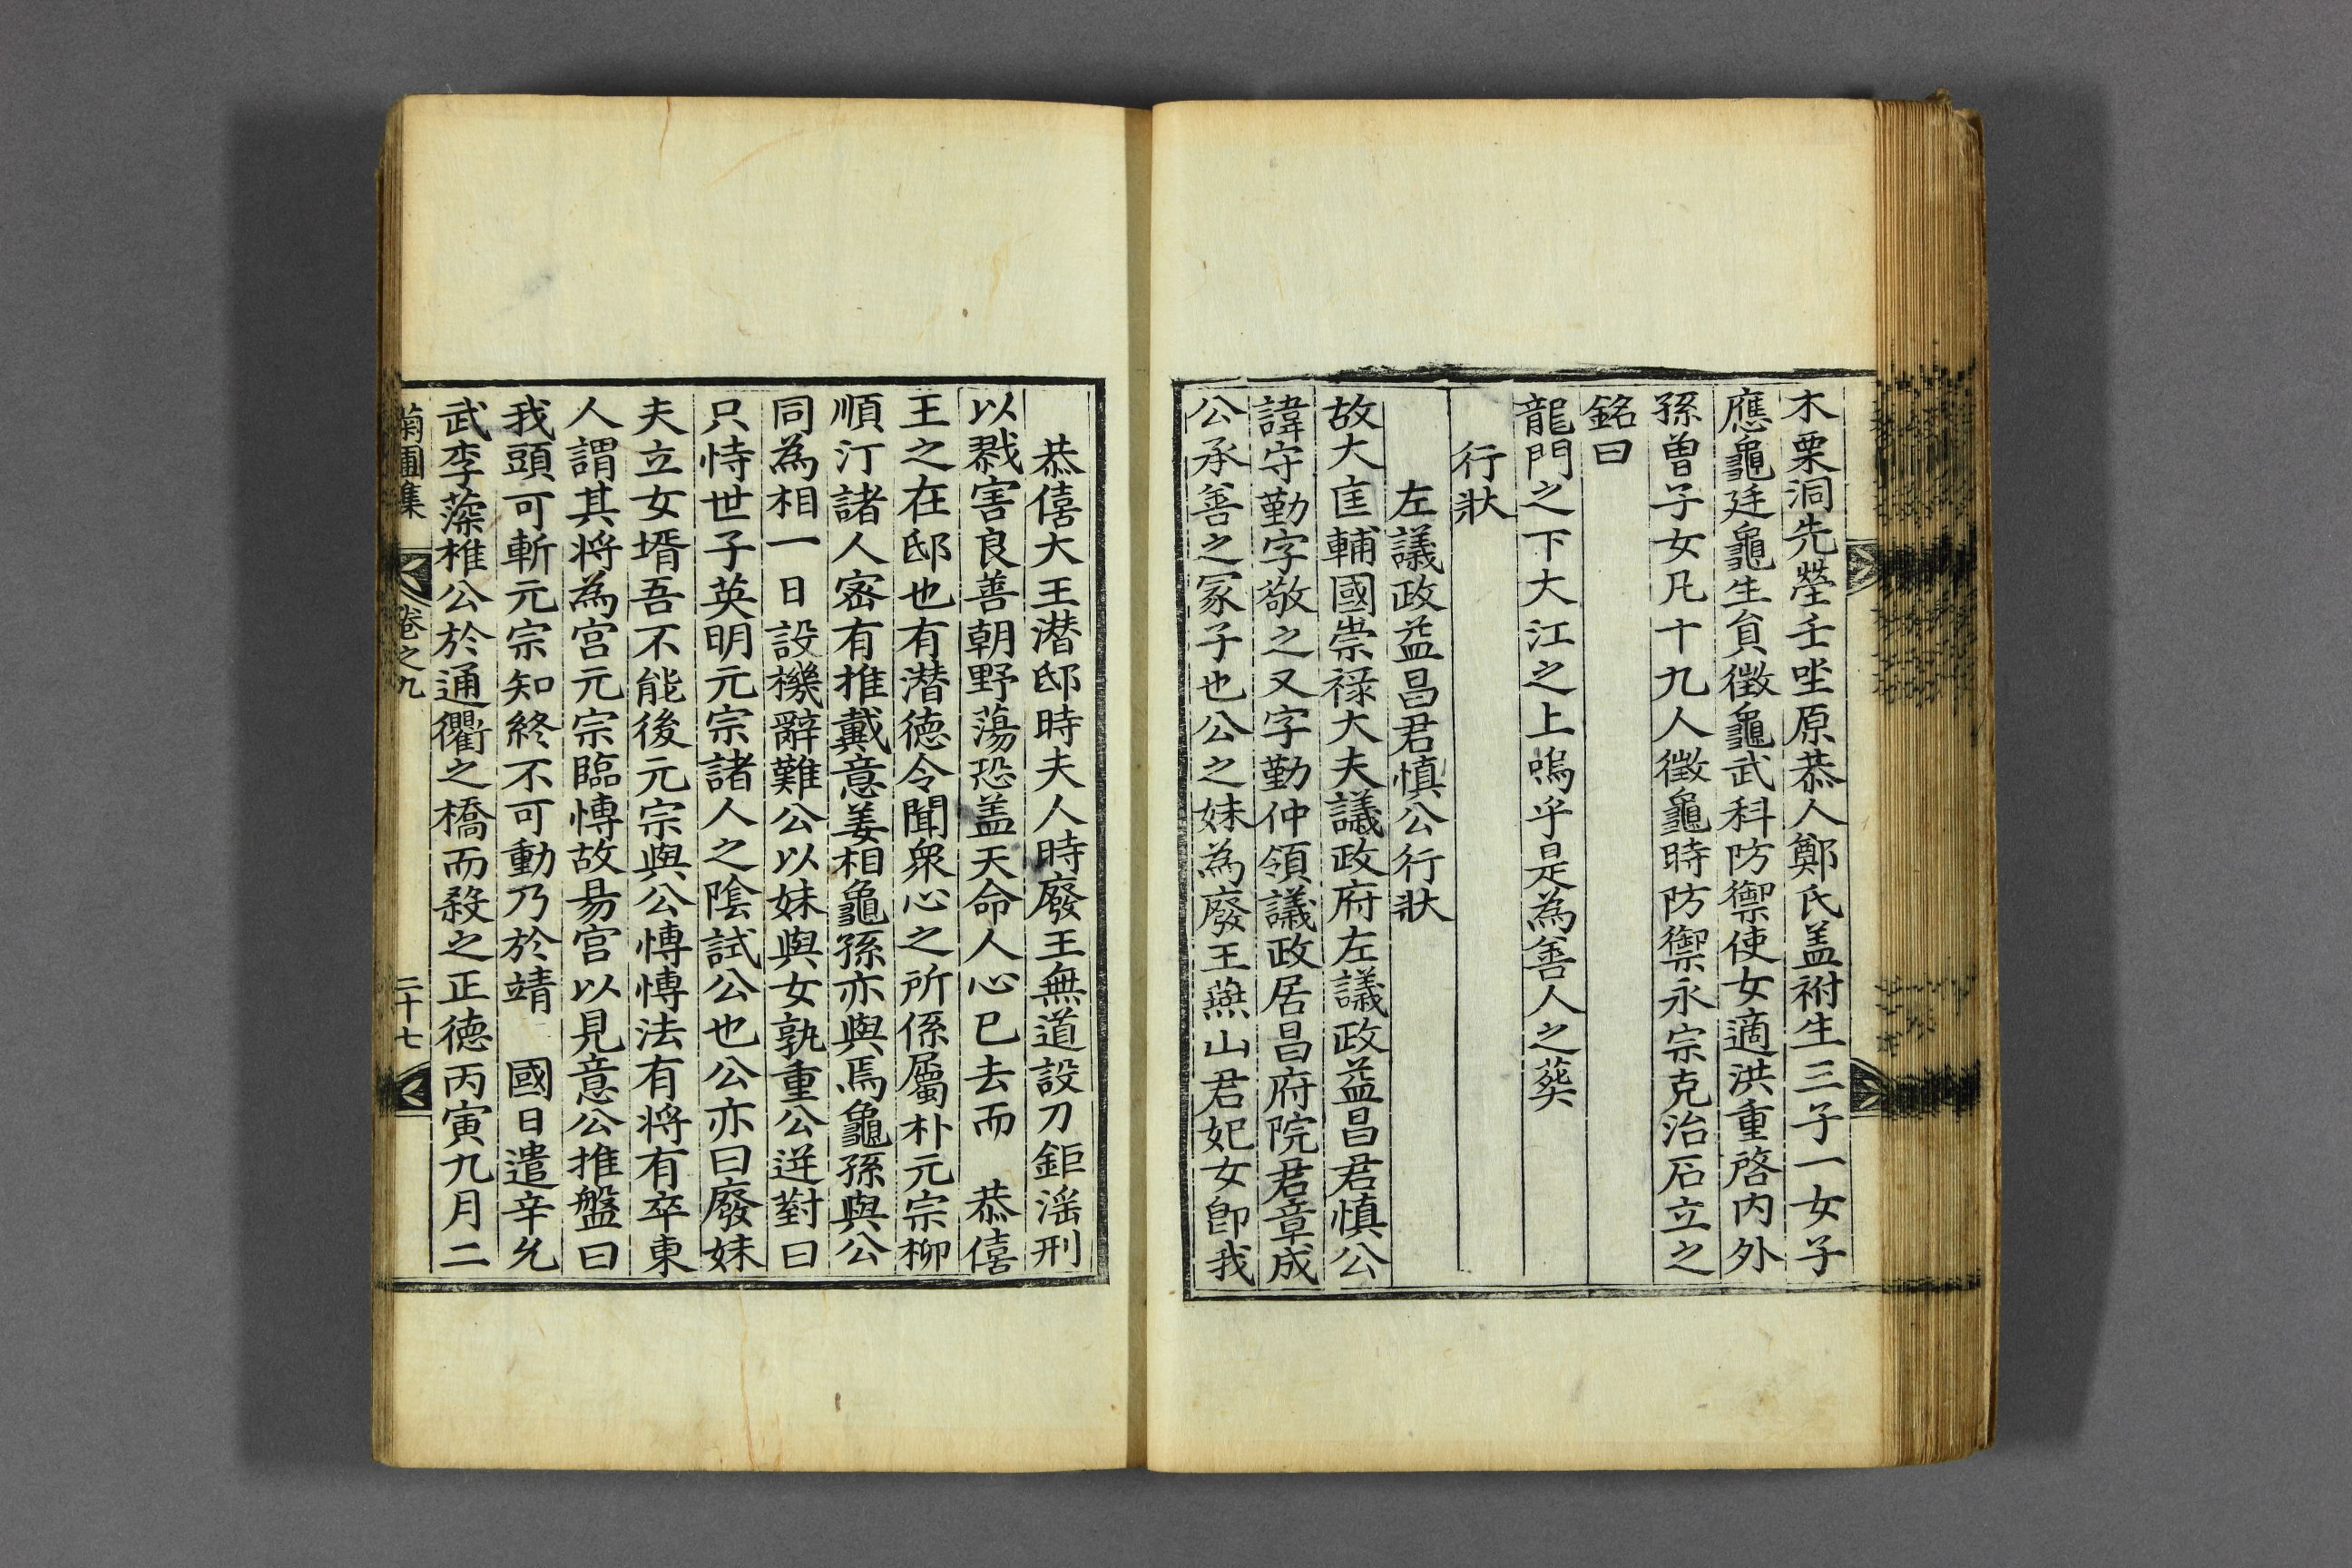 木栗洞先塋壬坐原恭人鄭氏盖祔生三子一女子
應龜廷龜生負徵龜武科防禦使女適洪重啓内外
孫曾子女凡十九人徵龜時防禦永宗克治石立之
銘曰
龍門之下大江之上嗚乎是為善人之葬
行狀
左議政益昌君慎公行狀
故大匡輔國崇祿大夫議政府左議政益昌君慎公
諱守勤字敬之又字勤仲領議政居昌府院君章成
公承善之冢子也公之妹為廢王燕山君妃女卽我
恭僖大王潜邸時夫人時廢王無道設刀鉅滛刑
以戮害良善朝野蕩恐盖天命人心已去而 恭僖
王之在邸也有潜徳令聞衆心之所係屬朴元宗柳
順汀諸人宻有推戴意姜相龜孫亦與焉龜孫與公
同為相一日設機辭難公以妹與女孰重公逆對曰
只恃世子英明元宗諸人之陰試公也公亦曰廢妹
夫立女壻吾不能後元宗與公愽愽法有将有卒東
人謂其将為宫元宗臨愽故昜宫以見意公推盤曰
我頭可斬元宗知終不可動乃於靖 國日遣辛允
武李藻椎公於通衢之橋而殺之正徳丙寅九月二
菊圃集 卷之九 二十七